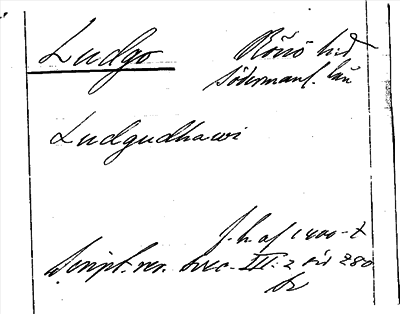 Ludgo
Rönö hd
Södermanl. län
Ludgudhawi
f. h. af 1400-t
Script. rer. svec. III: 2 sid 280